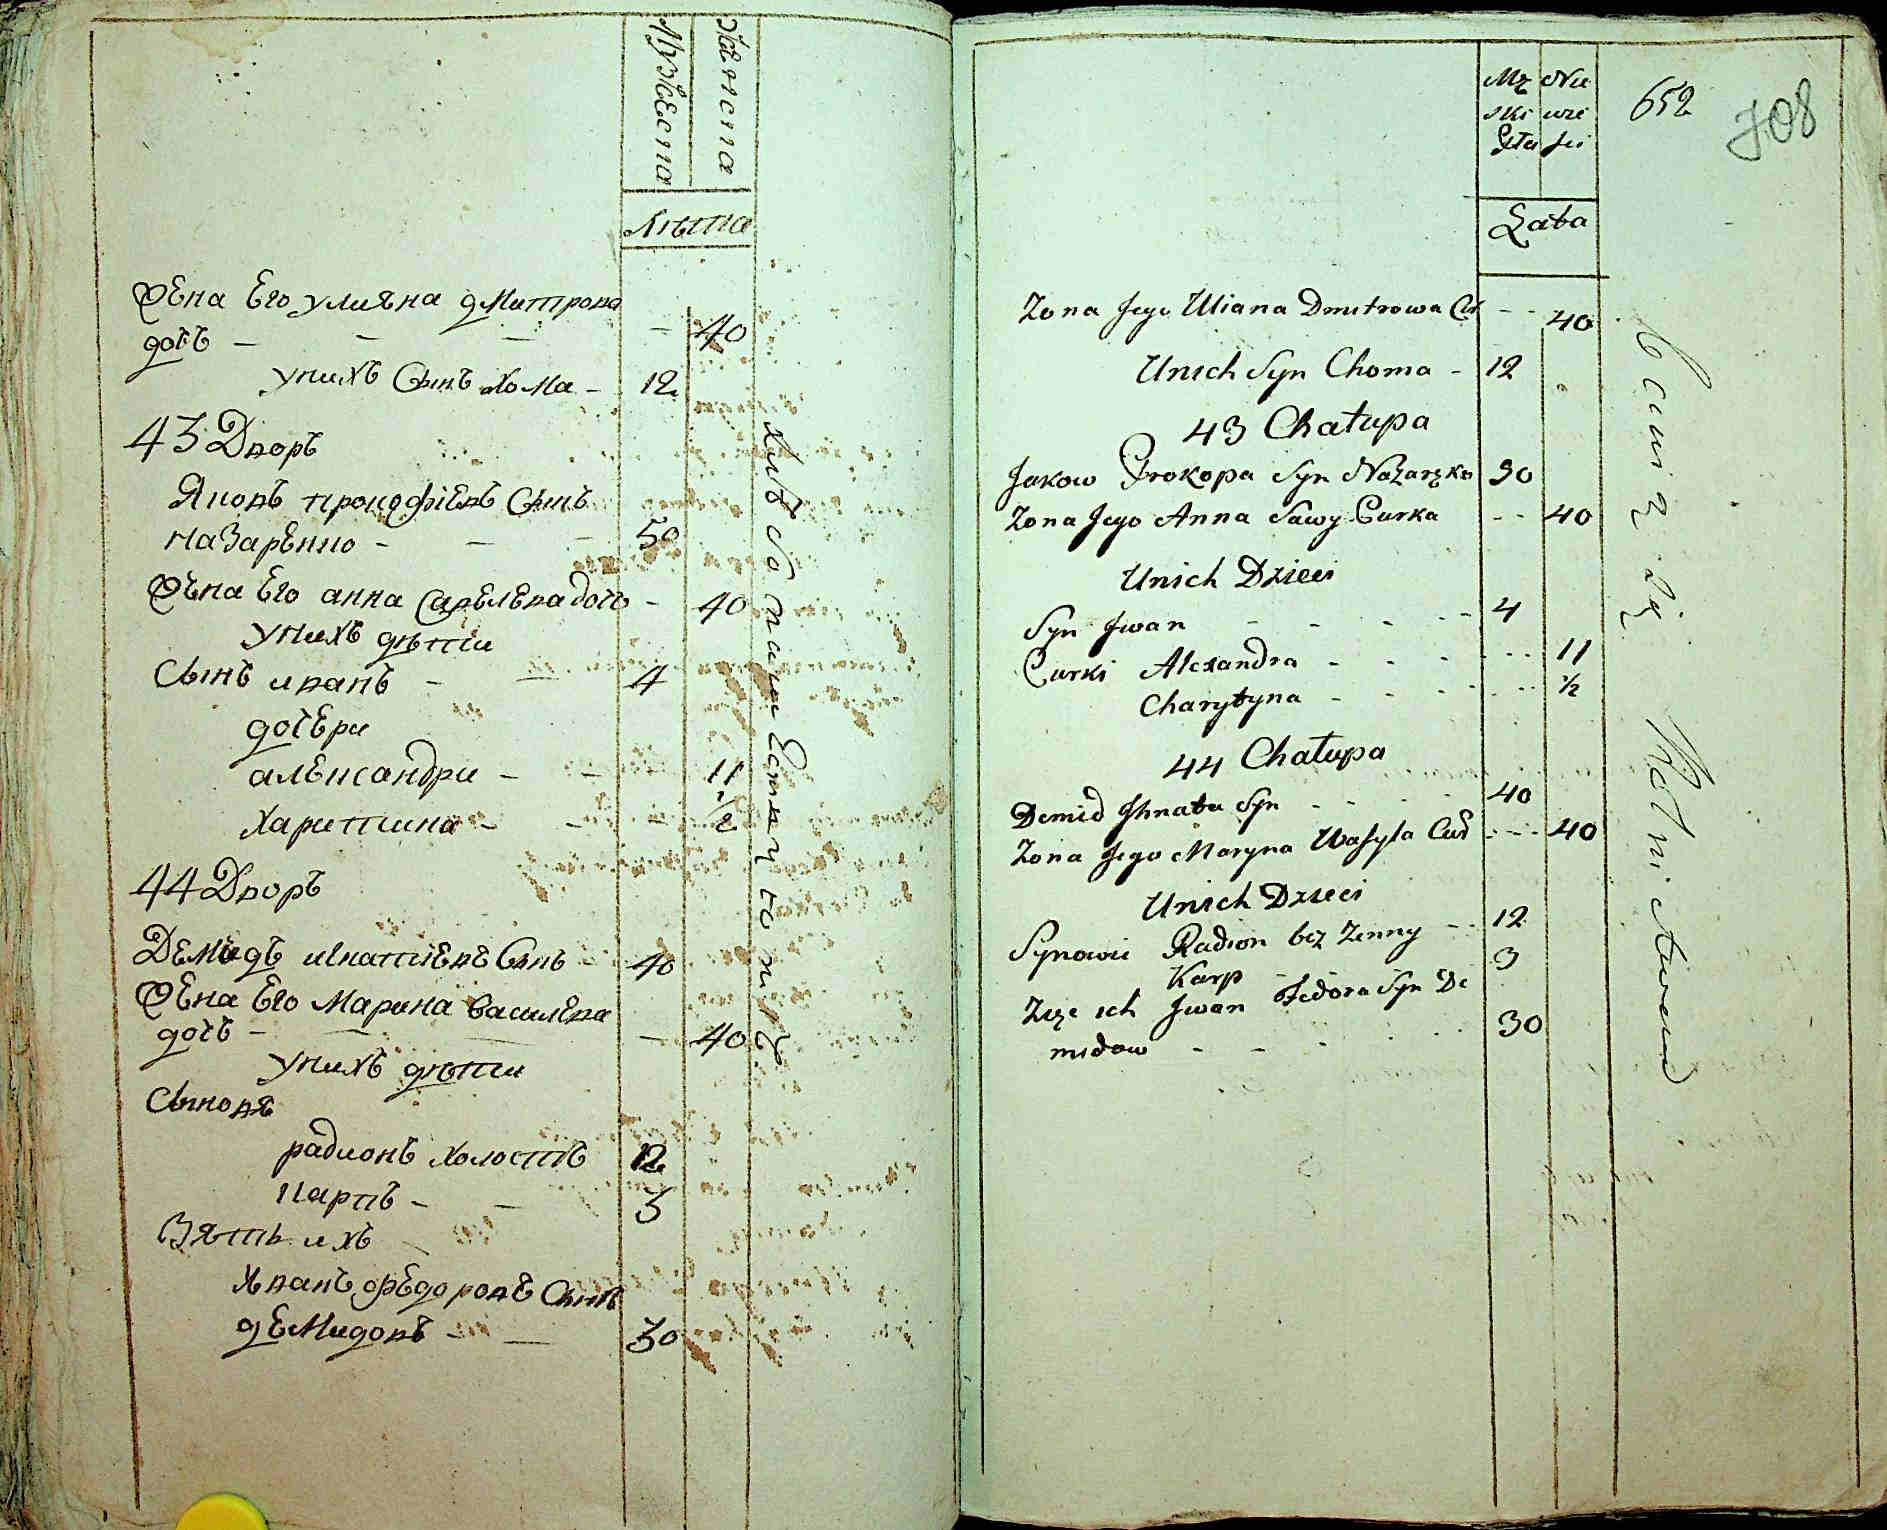 Мужеска
Женска
Лѣта
Жена Его улияна дМитрова
дочъ - - - - 40
унихъ Сынъ хоМа - 12
43 Дворъ
Яковъ прокофіевъ Сынъ
наЗаренко - - - 50
Жена Его анна СавЕлЕва дочъ - 40
унихъ дѣти
Сынъ иванъ - - 4
дочЕри
алЕксандри - - 11
Харитина - - - 1/2
44 Дворъ
ДЕМидъ игнатіЕвъ Сынъ - 40
Жена Его Марина ВасилЕва
дочъ - - - - 40
унихъ дѣти
Сыновя
радионъ холостъ 12
карпъ - - 3
Зять ихъ
иванъ фЕдоровъ Сынъ
дЕМидовъ - - 30
Mę Nie
ski wie
Płu ści
652
708
Lata
Zona Jego Uliana Dmitrowa Cur - - 40
Unich Syn Choma - 12
43 Chałupa
Jakow Prokopa Syn Nazaręko 50
Zona Jego Anna Sawy Curka - - 40
Unich Dzieci
Syn Jwan - - - - 4
Curki Alexandra - - - - - 11
Charytyna - - - - - 1/2
44 Chałupa
Demid Jhnata Syn - - - 40
Zona Jego Maryna Wasyla Cur - - - 40
Unich Dzieci
Synowie Radion bez Zenny - - 12
Karp 3
Zięc ich Jwan Fedora Syn De
midow - - - - 30